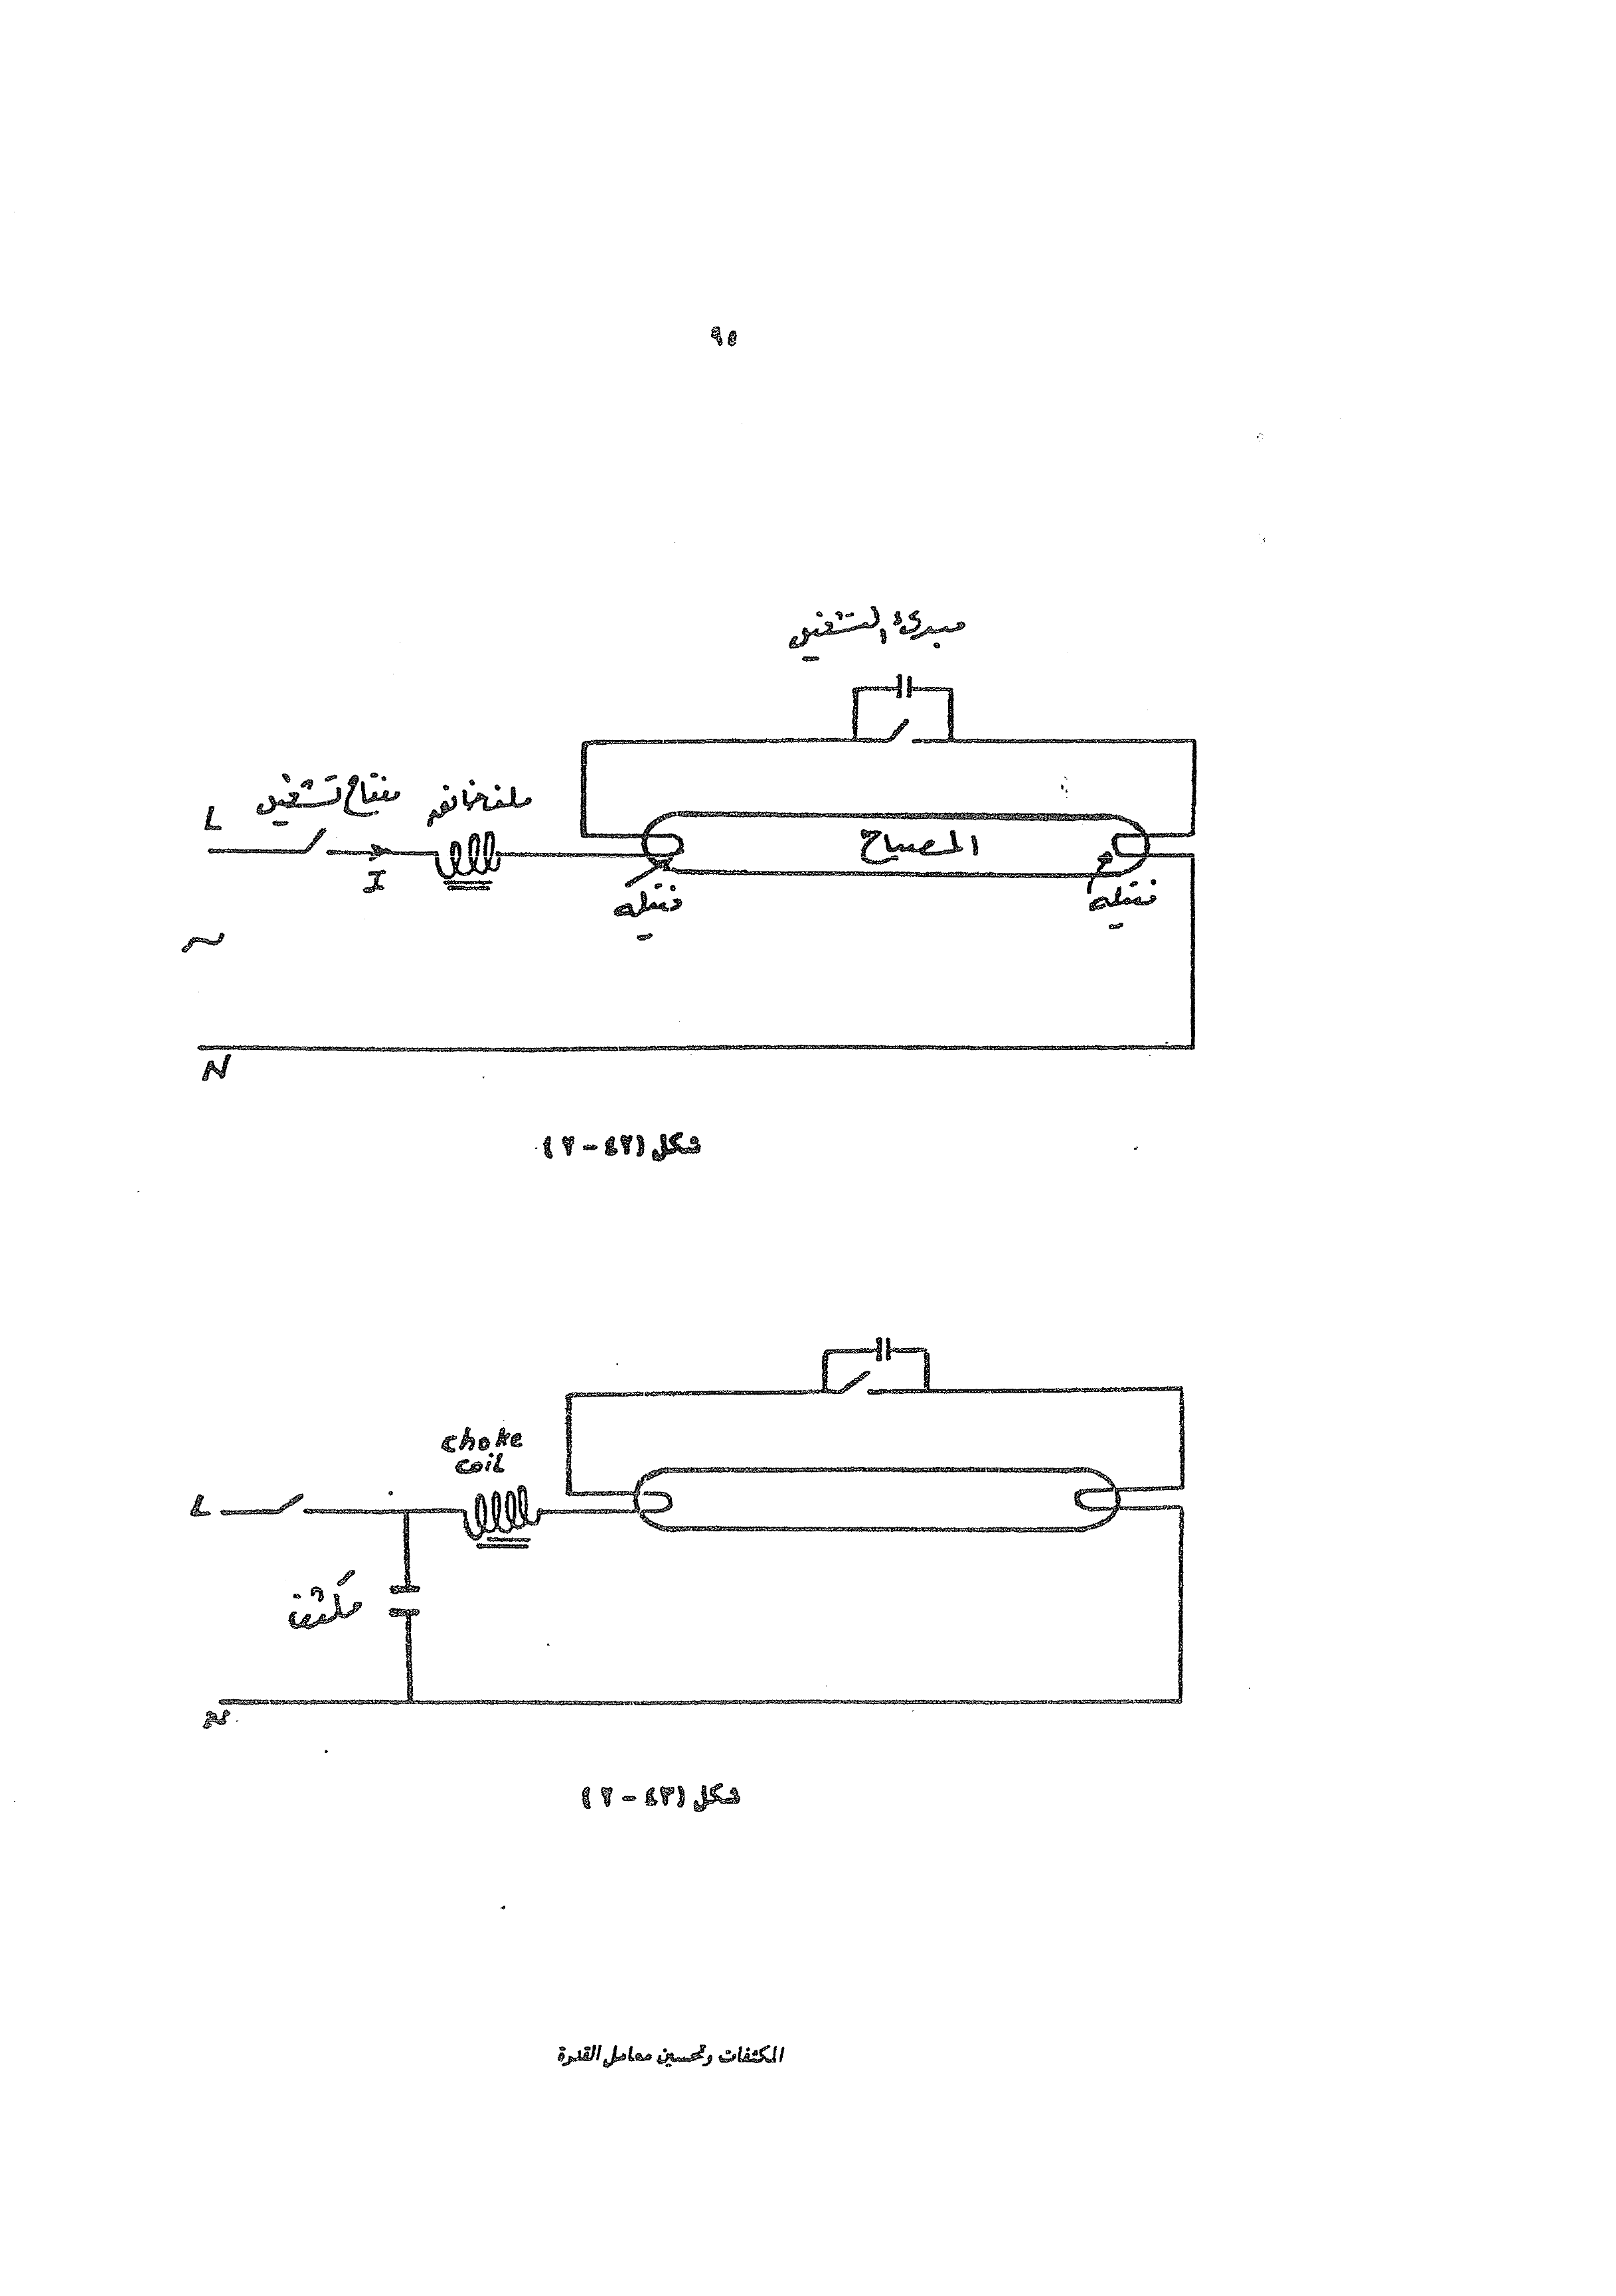 ٩٥
مبدئ التشغيل
مفتاح تشغيل
ملف خانق
L
I
المصباح
فتيله
فتيله
~
N
شكل (٤٢ - ٢)
choke
coil
L
مكثف
N
شكل (٤٣ - ٢)
المكثفات وتحسين معامل القدرة